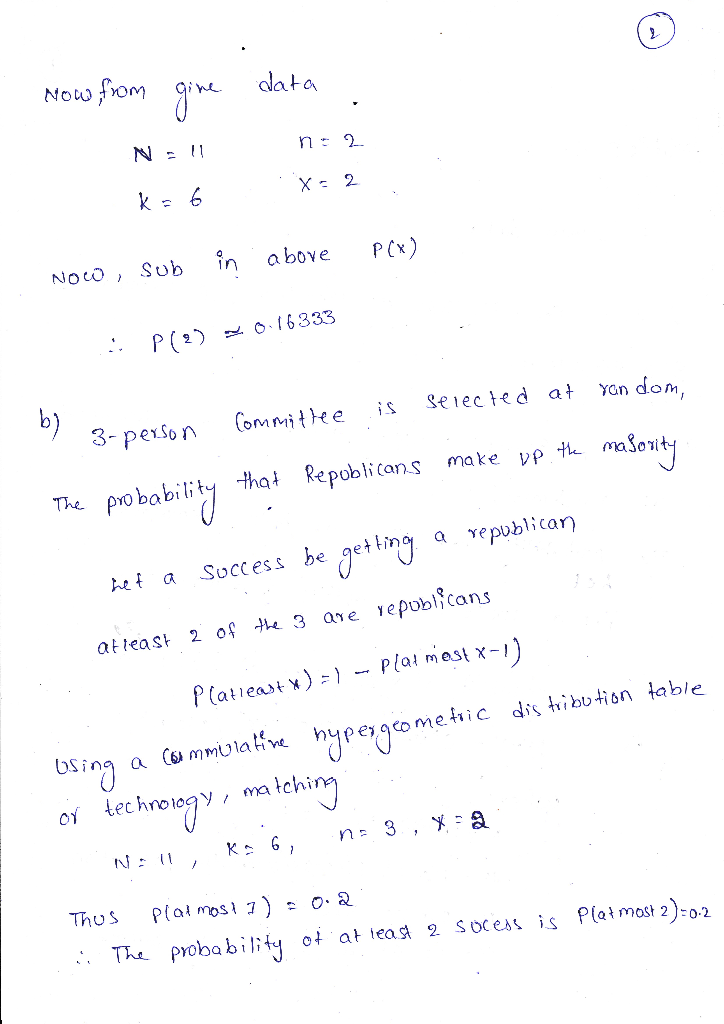 2
Now, from give data
N = 11 n = 2
k = 6 X = 2
Now, sub in above P(x)
∴ P(2) ≃ 0.16333
b) 3-person Committee is selected at random,
The probability that Republicans make up the majority
Let a success be getting a republican
atleast 2 of the 3 are republicans
P(atleast x) = 1 - P(at most x-1)
Using a Commulative hypergeometric distribution table
or technology, matching
N = 11, K = 6, n = 3, x = 2
Thus P(at most 1) = 0.2
∴ The probability of at least 2 socess is P(at most 2)=0.2